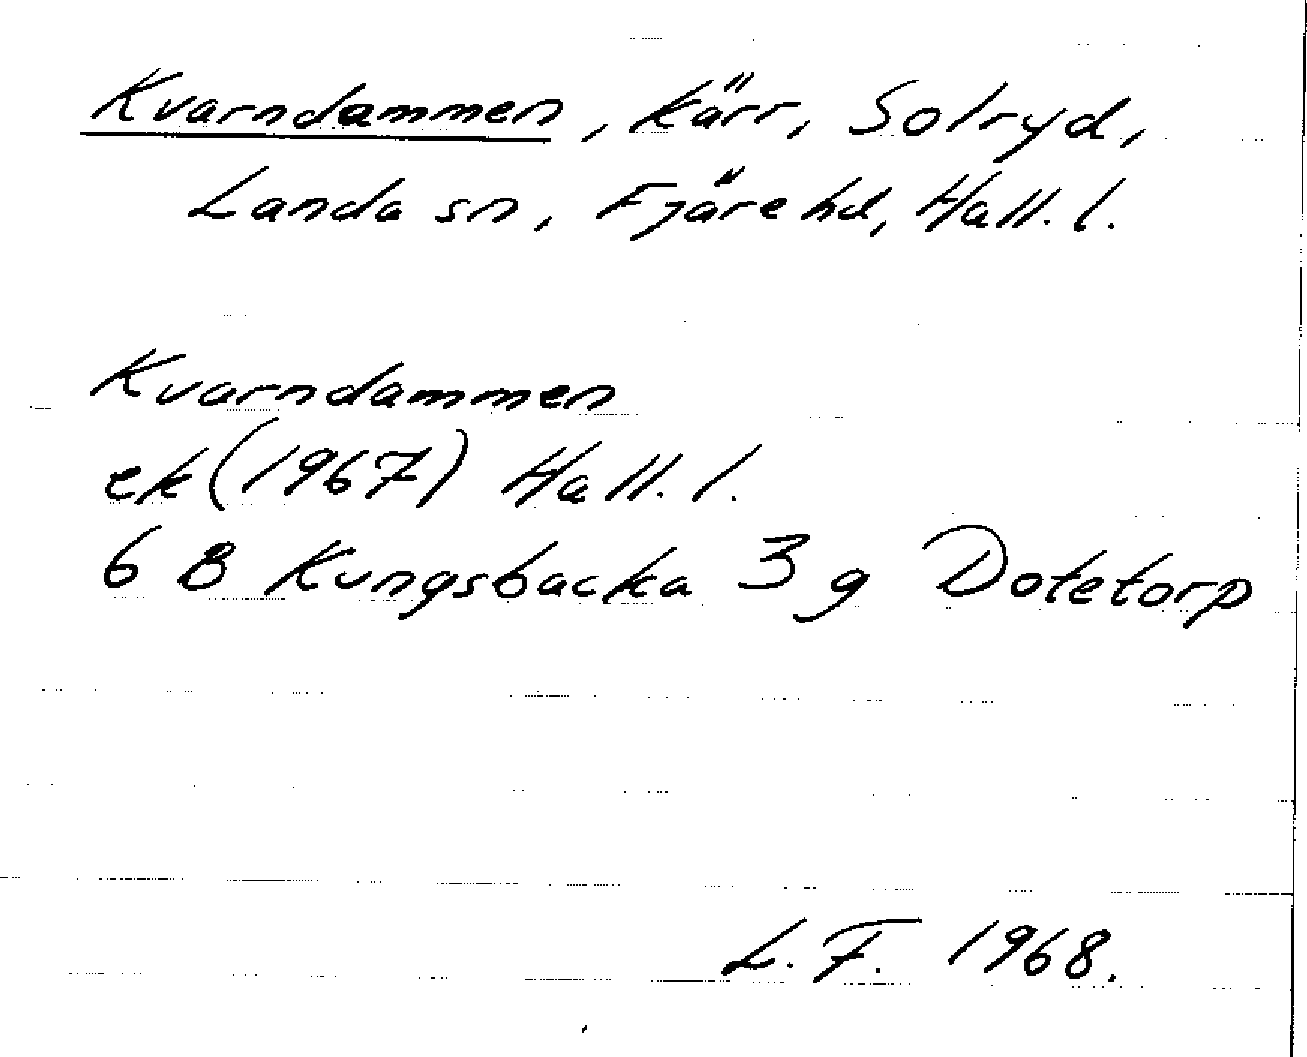 Kvarndammen, kärr, Solryd,
Landa sn, Fjäre hd, Hall. l.
Kvarndammen
ek (1967) Hall. l.
6 B Kungsbacka 3 g Dotetorp
L. F. 1968.